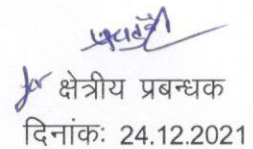 for क्षेत्रीय प्रबन्धक
दिनांकः 24.12.2021